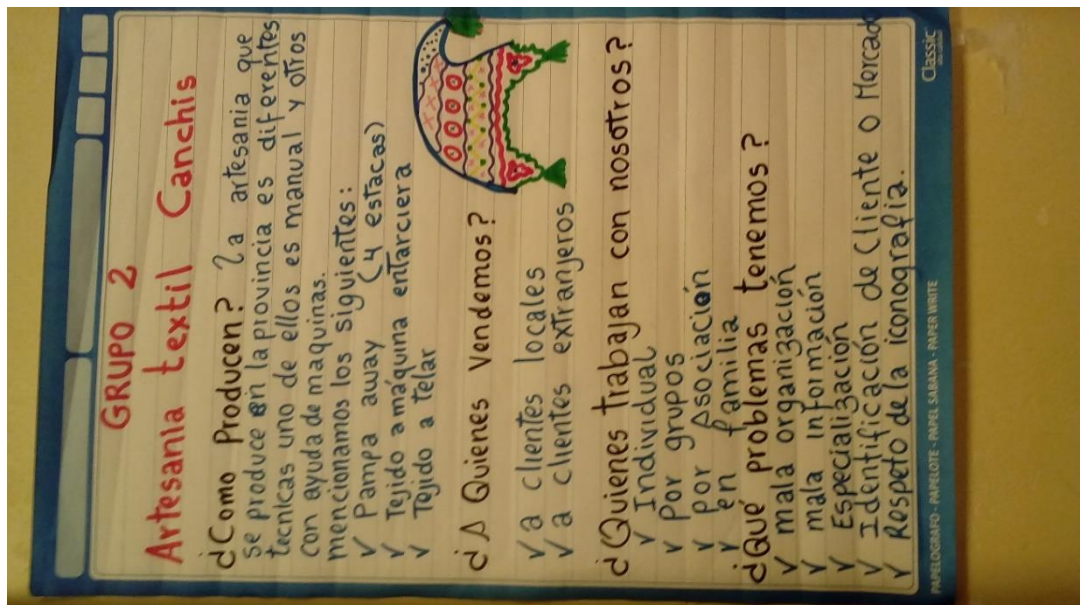 GRUPO 2
Artesania textil Canchis
¿Como Producen? La artesania que
se produce en la provincia es diferentes
tecnicas uno de ellos es manual y otros
con ayuda de maquinas.
mencionamos los siguientes:
✓ Pampa away (4 estacas)
✓ Tejido a máquina entarciera
✓ Tejido a telar
¿A Quienes Vendemos?
✓ a clientes locales
✓ a clientes extranjeros
¿Quienes trabajan con nosotros?
✓ Individual
✓ Por grupos
✓ por Asociación
✓ en familia
¿Qué problemas tenemos?
✓ mala organización
✓ mala información
✓ Especialización
✓ Identificación de Cliente o Mercado
✓ Respeto de la iconografia.
PAPELOGRAFO - PAPELOTE - PAPEL SABANA - PAPER WRITE
Classic